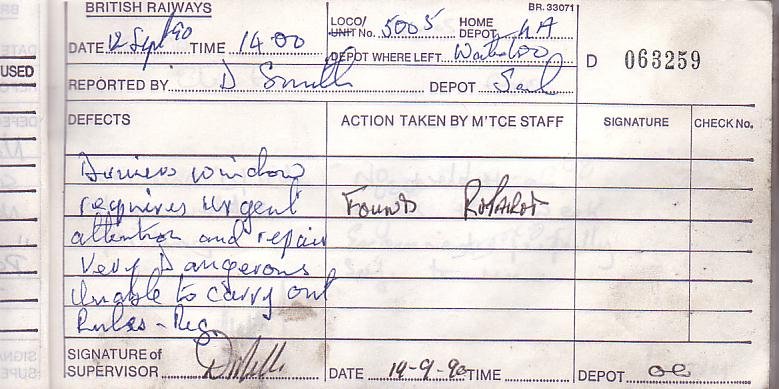 BRITISH RAIWAYS
BR. 33071
LOCO/ UNIT No. 5005 HOME DEPOT
DATE 12 Sept 90 TIME 14.00 DEPOT WHERE LEFT Waterloo
D 063259
USED
REPORTED BY D Smith DEPOT
DEFECTS ACTION TAKEN BY M'TCE STAFF SIGNATURE CHECK No.
Drivers window
requires urgent Found
attention and repair
Very Dangerous
Unable to carry out
Rules - Reg.
SIGNATURE of SUPERVISOR DATE 19-9-90 TIME DEPOT